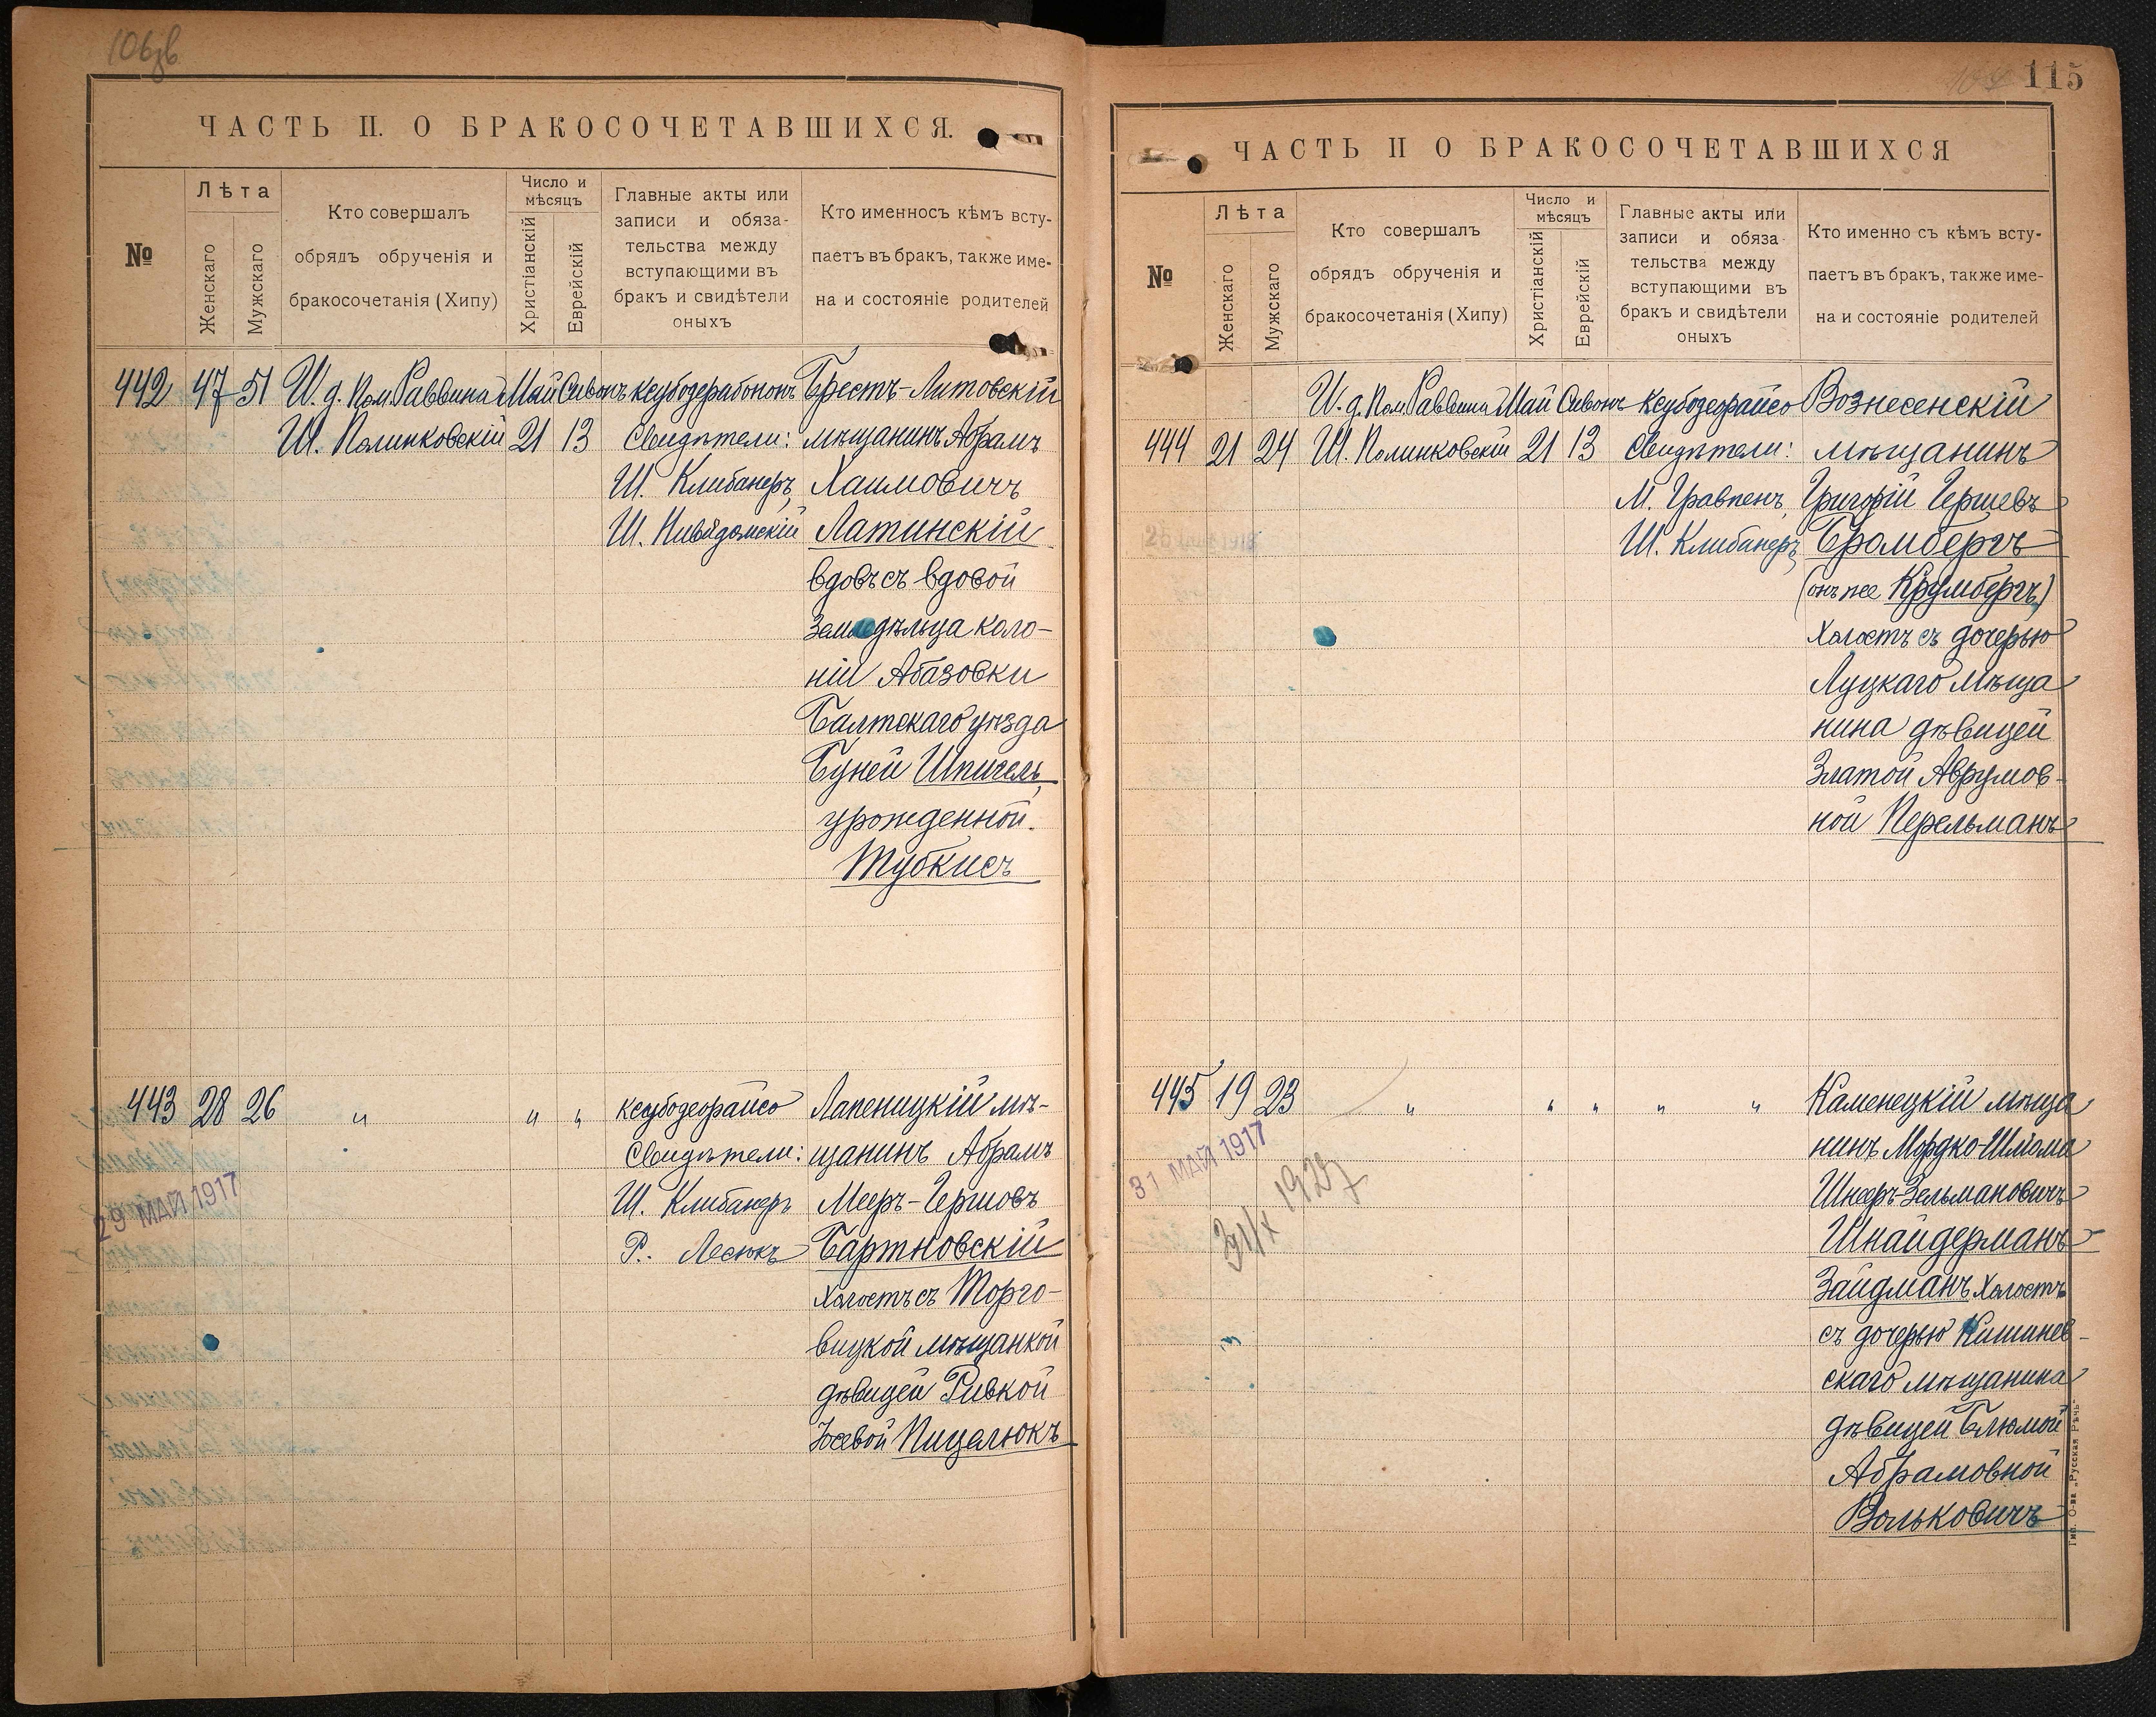 106зв
ЧАСТЬ II. О БРАКОСОЧЕТАВШИХСЯ.
№
Лѣта
Женскаго
Мужскаго
Кто совершалъ
обрядъ обрученія и
бракосочетанія (Хипу)
Число и
мѣсяцъ
Христіанскій
Еврейскій
Главные акты или
записи и обяза-
тельства между
вступающими въ
бракъ и свидѣтели
оныхъ
Кто именносъ кѣмъ всту-
паетъ въ бракъ, также име-
на и состояніе родителей
442 47 51 И. д. Пом. Раввина Май Сивонъ Ксубодерабононъ Брестъ-Литовскій
Ш. Полинковскій 21 13 Свидѣтели: мѣщанинъ Абрамъ
Ш. Клибанеръ, Хаимовичъ
Ш. Латинскій
вдовъ съ вдовой
земледѣльца коло-
ніи Абазовки
Балтскаго уѣзда
Буней Шпигель,
урожденной.
Тубкисъ
443 28 26 " " " ксубодеорайсо Лапеницкій мѣ-
Свидѣтели: щанинъ Абрамъ
Ш. Клибанеръ Мееръ-Гершовъ
29 МАЙ 1917
Р. Леснюкъ Бартновскій
холостъ съ Торго-
вицкой мѣщанкой
дѣвицей Ривкой
Іосевой Пицелюкъ
115
ЧАСТЬ II О БРАКОСОЧЕТАВШИХСЯ
№
Лѣта
Женскаго
Мужскаго
Кто совершалъ
обрядъ обрученія и
бракосочетанія (Хипу)
Число и
мѣсяцъ
Христіанскій
Еврейскій
Главные акты или
записи и обяза-
тельства между
вступающими въ
бракъ и свидѣтели
оныхъ
Кто именно съ кѣмъ всту-
паетъ въ бракъ, также име-
на и состояніе родителей
И. д. Пом. Раввина Май Сивонъ Ксубодеорайсо Вознесенскій
444 21 24 Ш. Полинковскій 21 13 Свидѣтели: мѣщанинъ
М. Гравпенъ, Григорій Гершевъ
Ш. Клибанеръ, Бромбергъ
(онъ же Крумбергъ)
Холостъ съ дочерью
Луцкаго мѣща
нина дѣвицей
Златой Аврумов-
ной Перельманъ
445 19 23 " " " " " Каменецкій мѣща
31 МАЙ 1917
нинъ Мордко-Шлома
Шнеер-Зельмановичъ
Шнайдерманъ
Зайдманъ холостъ
съ дочерью Кишинев-
скаго мѣщанина
дѣвицей Блюмой
Абрамовной
Вольковичъ
Тип. О-ва „Русская Рѣчь"